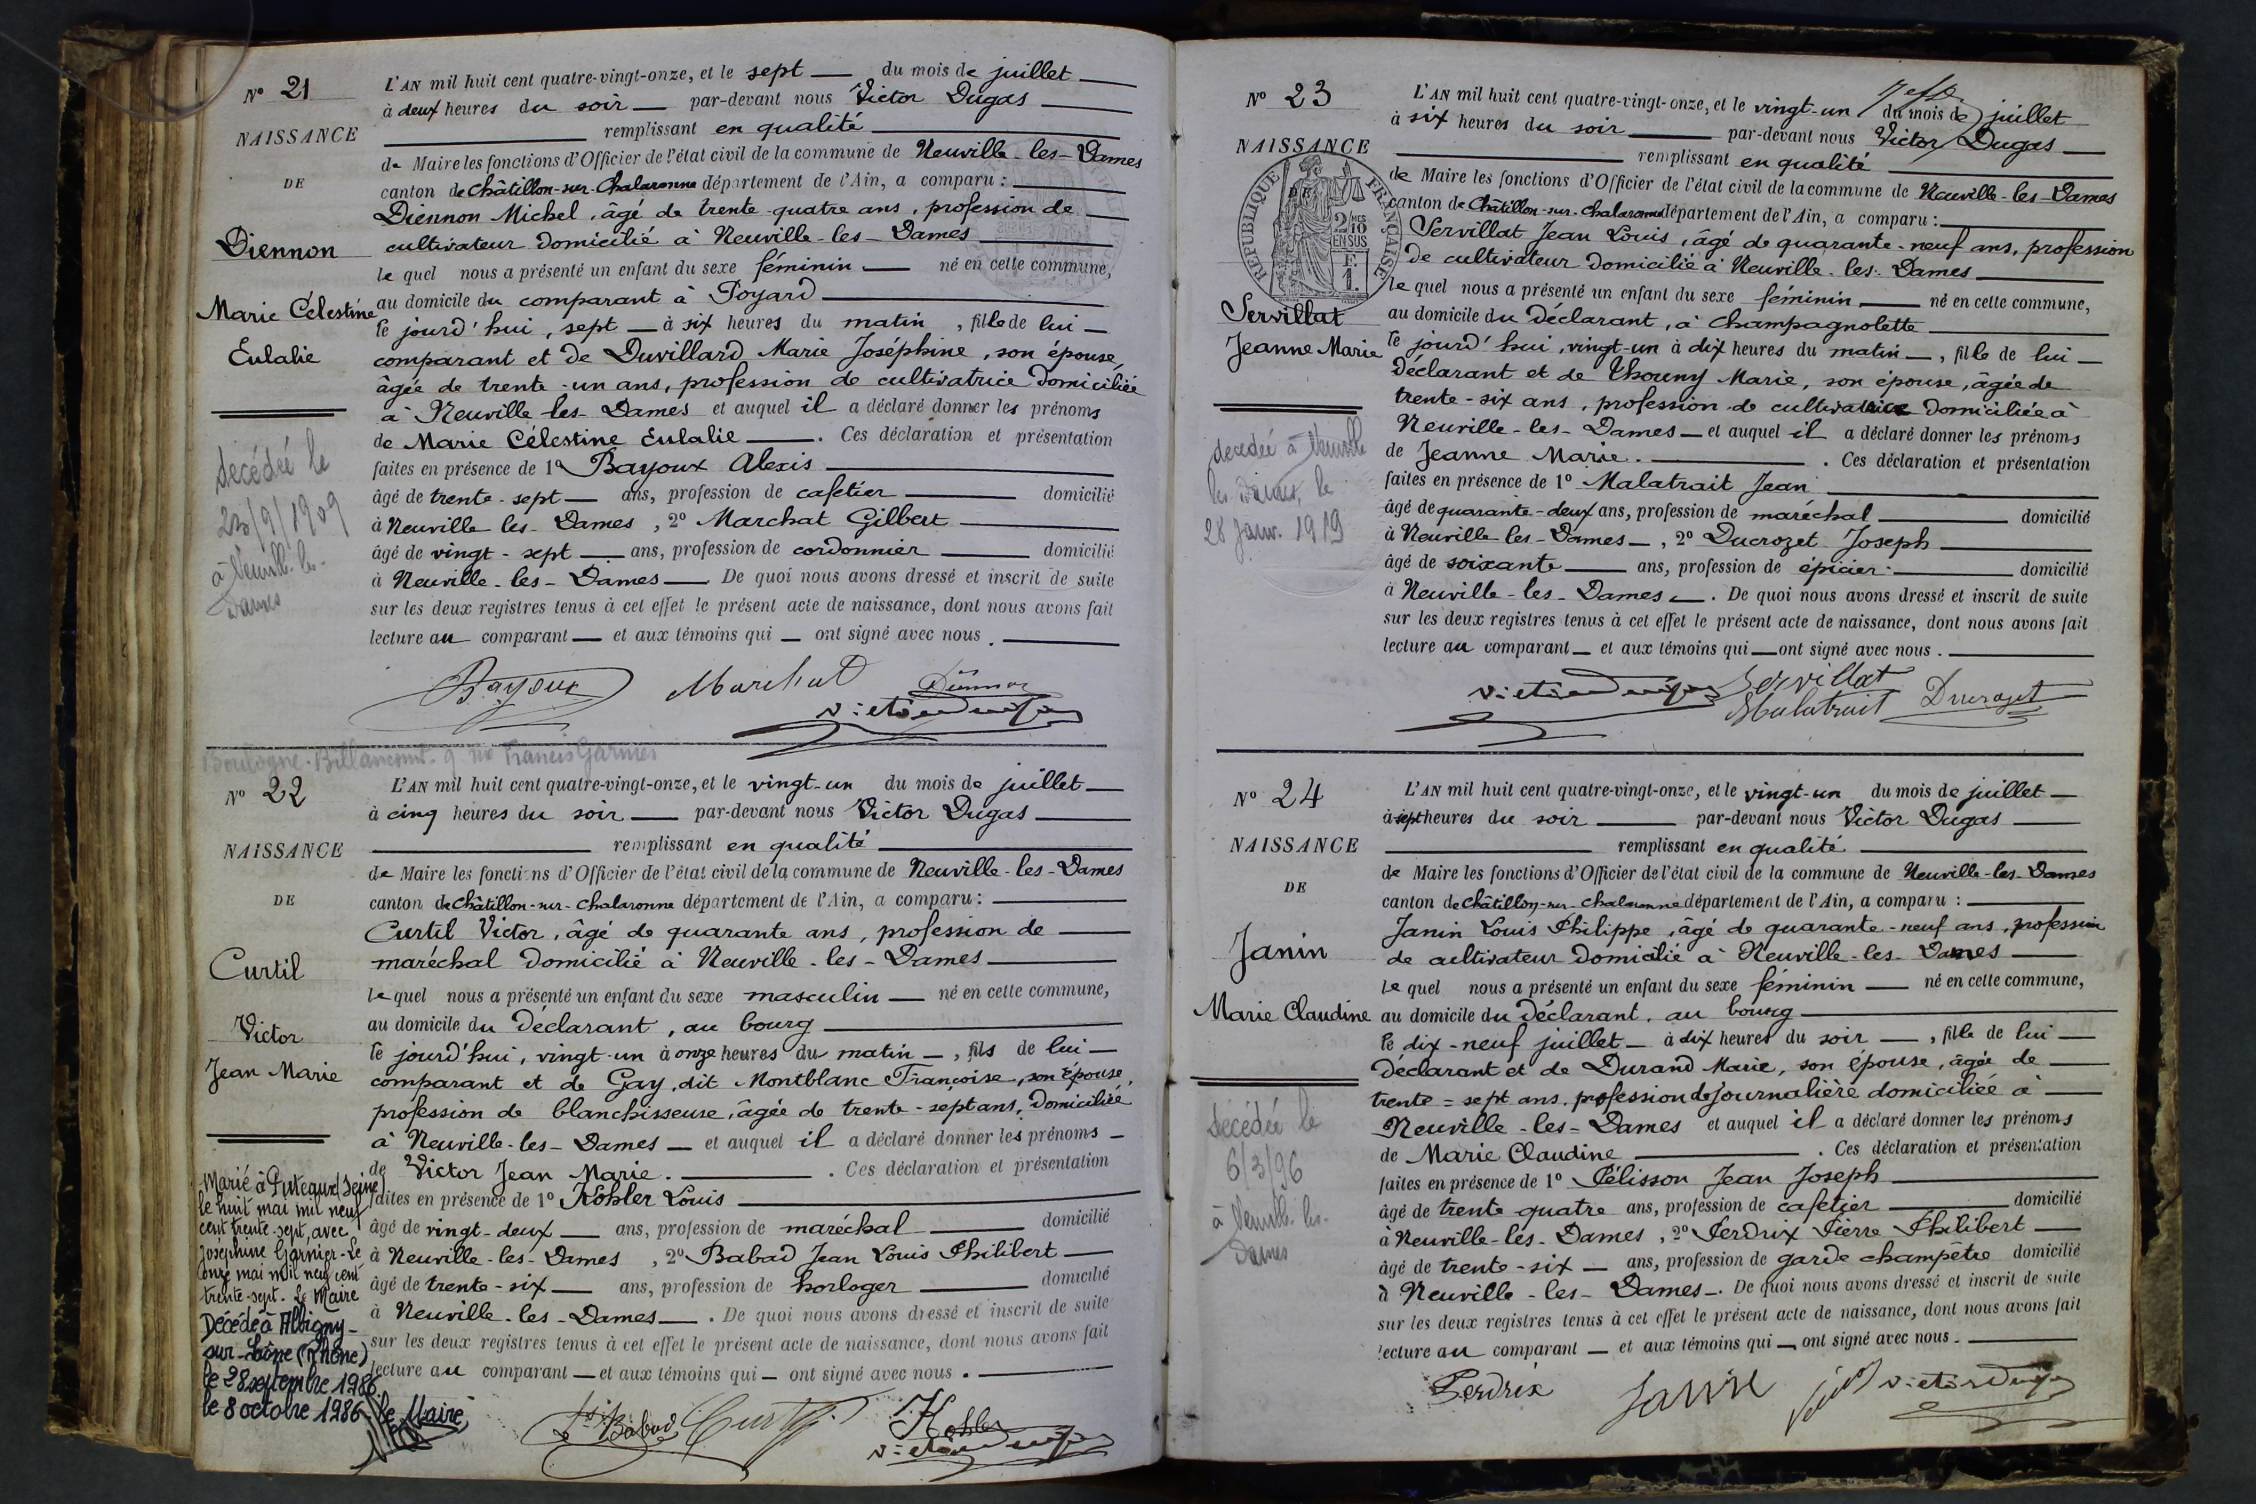 N° 21
NAISSANCE
DE
Diennon
Marie Célestine
Eulalie
Décédée le
23/9/1909
à Neuville-les-
Dames
L'AN mil huit cent quatre-vingt-onze, et le sept du mois de juillet
à deux heures du soir par-devant nous Victor Dugas
remplissant en qualité
de Maire les fonctions d'Officier de l'état civil de la commune de Neuville-les-Dames
canton de Châtillon-sur-Chalaronne département de l'Ain, a comparu :
Diennon Michel, âgé de trente-quatre ans, profession de
cultivateur domicilié à Neuville-les-Dames
le quel nous a présenté un enfant du sexe féminin né en cette commune,
au domicile du comparant à Poyard
le jourd'hui, sept à six heures du matin, fille de lui
comparant et de Duvillard Marie Joséphine, son épouse,
âgée de trente-un ans, profession de cultivatrice domiciliée
à Neuville-les-Dames et auquel il a déclaré donner les prénoms
de Marie Célestine Eulalie. Ces déclaration et présentation
faites en présence de 1° Bayoux Alexis
âgé de trente-sept ans, profession de cafetier domicilié
à Neuville les-Dames, 2° Marchat Gilbert
âgé de vingt-sept ans, profession de cordonnier domicilié
à Neuville-les-Dames De quoi nous avons dressé et inscrit de suite
sur les deux registres tenus à cet effet le présent acte de naissance, dont nous avons fait
lecture au comparant et aux témoins qui ont signé avec nous.
Bayoux Marchat Diennon
Victor Dugas
Boulogne-Billancourt 9 rue Francis Garnier
N° 22
NAISSANCE
DE
Curtil
Victor
Jean Marie
Marié à Puteaux (Seine)
le huit mai mil neuf
cent trente-sept, avec
Joséphine Garnier-Le
onze mai mil neuf cent
trente-sept. Le Maire
Décédé à Albigny-
sur-Saône (Rhône)
le 28 septembre 1986.
le 8 octobre 1986. le Maire
L'AN mil huit cent quatre-vingt-onze, et le vingt-un du mois de juillet
à cinq heures du soir par-devant nous Victor Dugas
remplissant en qualité
de Maire les fonctions d'Officier de l'état civil de la commune de Neuville-les-Dames
canton de Châtillon-sur-Chalaronne département de l'Ain, a comparu :
Curtil Victor, âgé de quarante ans, profession de
maréchal domicilié à Neuville-les-Dames
le quel nous a présenté un enfant du sexe masculin né en cette commune,
au domicile du déclarant, au bourg
le jourd'hui, vingt-un à onze heures du matin, fils de lui
comparant et de Gay, dit Montblanc Françoise, son épouse,
profession de blanchisseuse, âgée de trente-sept ans, domiciliée
à Neuville-les-Dames et auquel il a déclaré donner les prénoms
de Victor Jean Marie. Ces déclaration et présentation
faites en présence de 1° Kohler Louis
âgé de vingt-deux ans, profession de maréchal domicilié
à Neuville-les-Dames, 2° Babad Jean Louis Philibert
âgé de trente-six ans, profession de horloger domicilié
à Neuville-les-Dames. De quoi nous avons dressé et inscrit de suite
sur les deux registres tenus à cet effet le présent acte de naissance, dont nous avons fait
lecture au comparant et aux témoins qui ont signé avec nous.
Babad Curtil Kohler
Victor Dugas
N° 23
NAISSANCE
RÉPUBLIQUE FRANÇAISE
2/10 MES
EN SUS
F.
1.
Servillat
Jeanne Marie
décédée à Neuville
les Dames, le
28 Janv. 1919
L'AN mil huit cent quatre-vingt-onze, et le vingt-un du mois de juillet
à six heures du soir par-devant nous Victor Dugas
remplissant en qualité
de Maire les fonctions d'Officier de l'état civil de la commune de Neuville-les-Dames
canton de Châtillon-sur-Chalaronne département de l'Ain, a comparu :
Servillat Jean Louis, âgé de quarante-neuf ans, profession
de cultivateur domicilié à Neuville-les-Dames
le quel nous a présenté un enfant du sexe féminin né en cette commune,
au domicile du déclarant, à Champagnolette
le jourd'hui, vingt-un à dix heures du matin, fille de lui
déclarant et de Thouny Marie, son épouse, âgée de
trente-six ans, profession de cultivatrice domiciliée à
Neuville-les-Dames et auquel il a déclaré donner les prénoms
de Jeanne Marie. Ces déclaration et présentation
faites en présence de 1° Malatrait Jean
âgé de quarante-deux ans, profession de maréchal domicilié
à Neuville-les-Dames, 2° Ducrozet Joseph
âgé de soixante ans, profession de épicier domicilié
à Neuville-les-Dames. De quoi nous avons dressé et inscrit de suite
sur les deux registres tenus à cet effet le présent acte de naissance, dont nous avons fait
lecture au comparant et aux témoins qui ont signé avec nous.
Victor Dugas Servillat
Malatrait Ducrozet
N° 24
NAISSANCE
DE
Janin
Marie Claudine
Décédée le
6/3/96
à Neuville-les-
Dames
L'AN mil huit cent quatre-vingt-onze, et le vingt-un du mois de juillet
à sept heures du soir par-devant nous Victor Dugas
remplissant en qualité
de Maire les fonctions d'Officier de l'état civil de la commune de Neuville-les-Dames
canton de Châtillon-sur-Chalaronne département de l'Ain, a comparu :
Janin Louis Philippe, âgé de quarante-neuf ans, profession
de cultivateur domicilié à Neuville-les-Dames
le quel nous a présenté un enfant du sexe féminin né en cette commune,
au domicile du déclarant, au bourg
le dix-neuf juillet à dix heures du soir, fille de lui
déclarant et de Durand Marie, son épouse, âgée de
trente-sept ans, profession de journalière domiciliée à
Neuville-les-Dames et auquel il a déclaré donner les prénoms
de Marie Claudine. Ces déclaration et présentation
faites en présence de 1° Pélisson Jean Joseph
âgé de trente quatre ans, profession de cafetier domicilié
à Neuville-les-Dames, 2° Perdrix Pierre Philibert
âgé de trente-six ans, profession de garde champêtre domicilié
à Neuville-les-Dames. De quoi nous avons dressé et inscrit de suite
sur les deux registres tenus à cet effet le présent acte de naissance, dont nous avons fait
lecture au comparant et aux témoins qui ont signé avec nous.
Perdrix Janin Victor Dugas